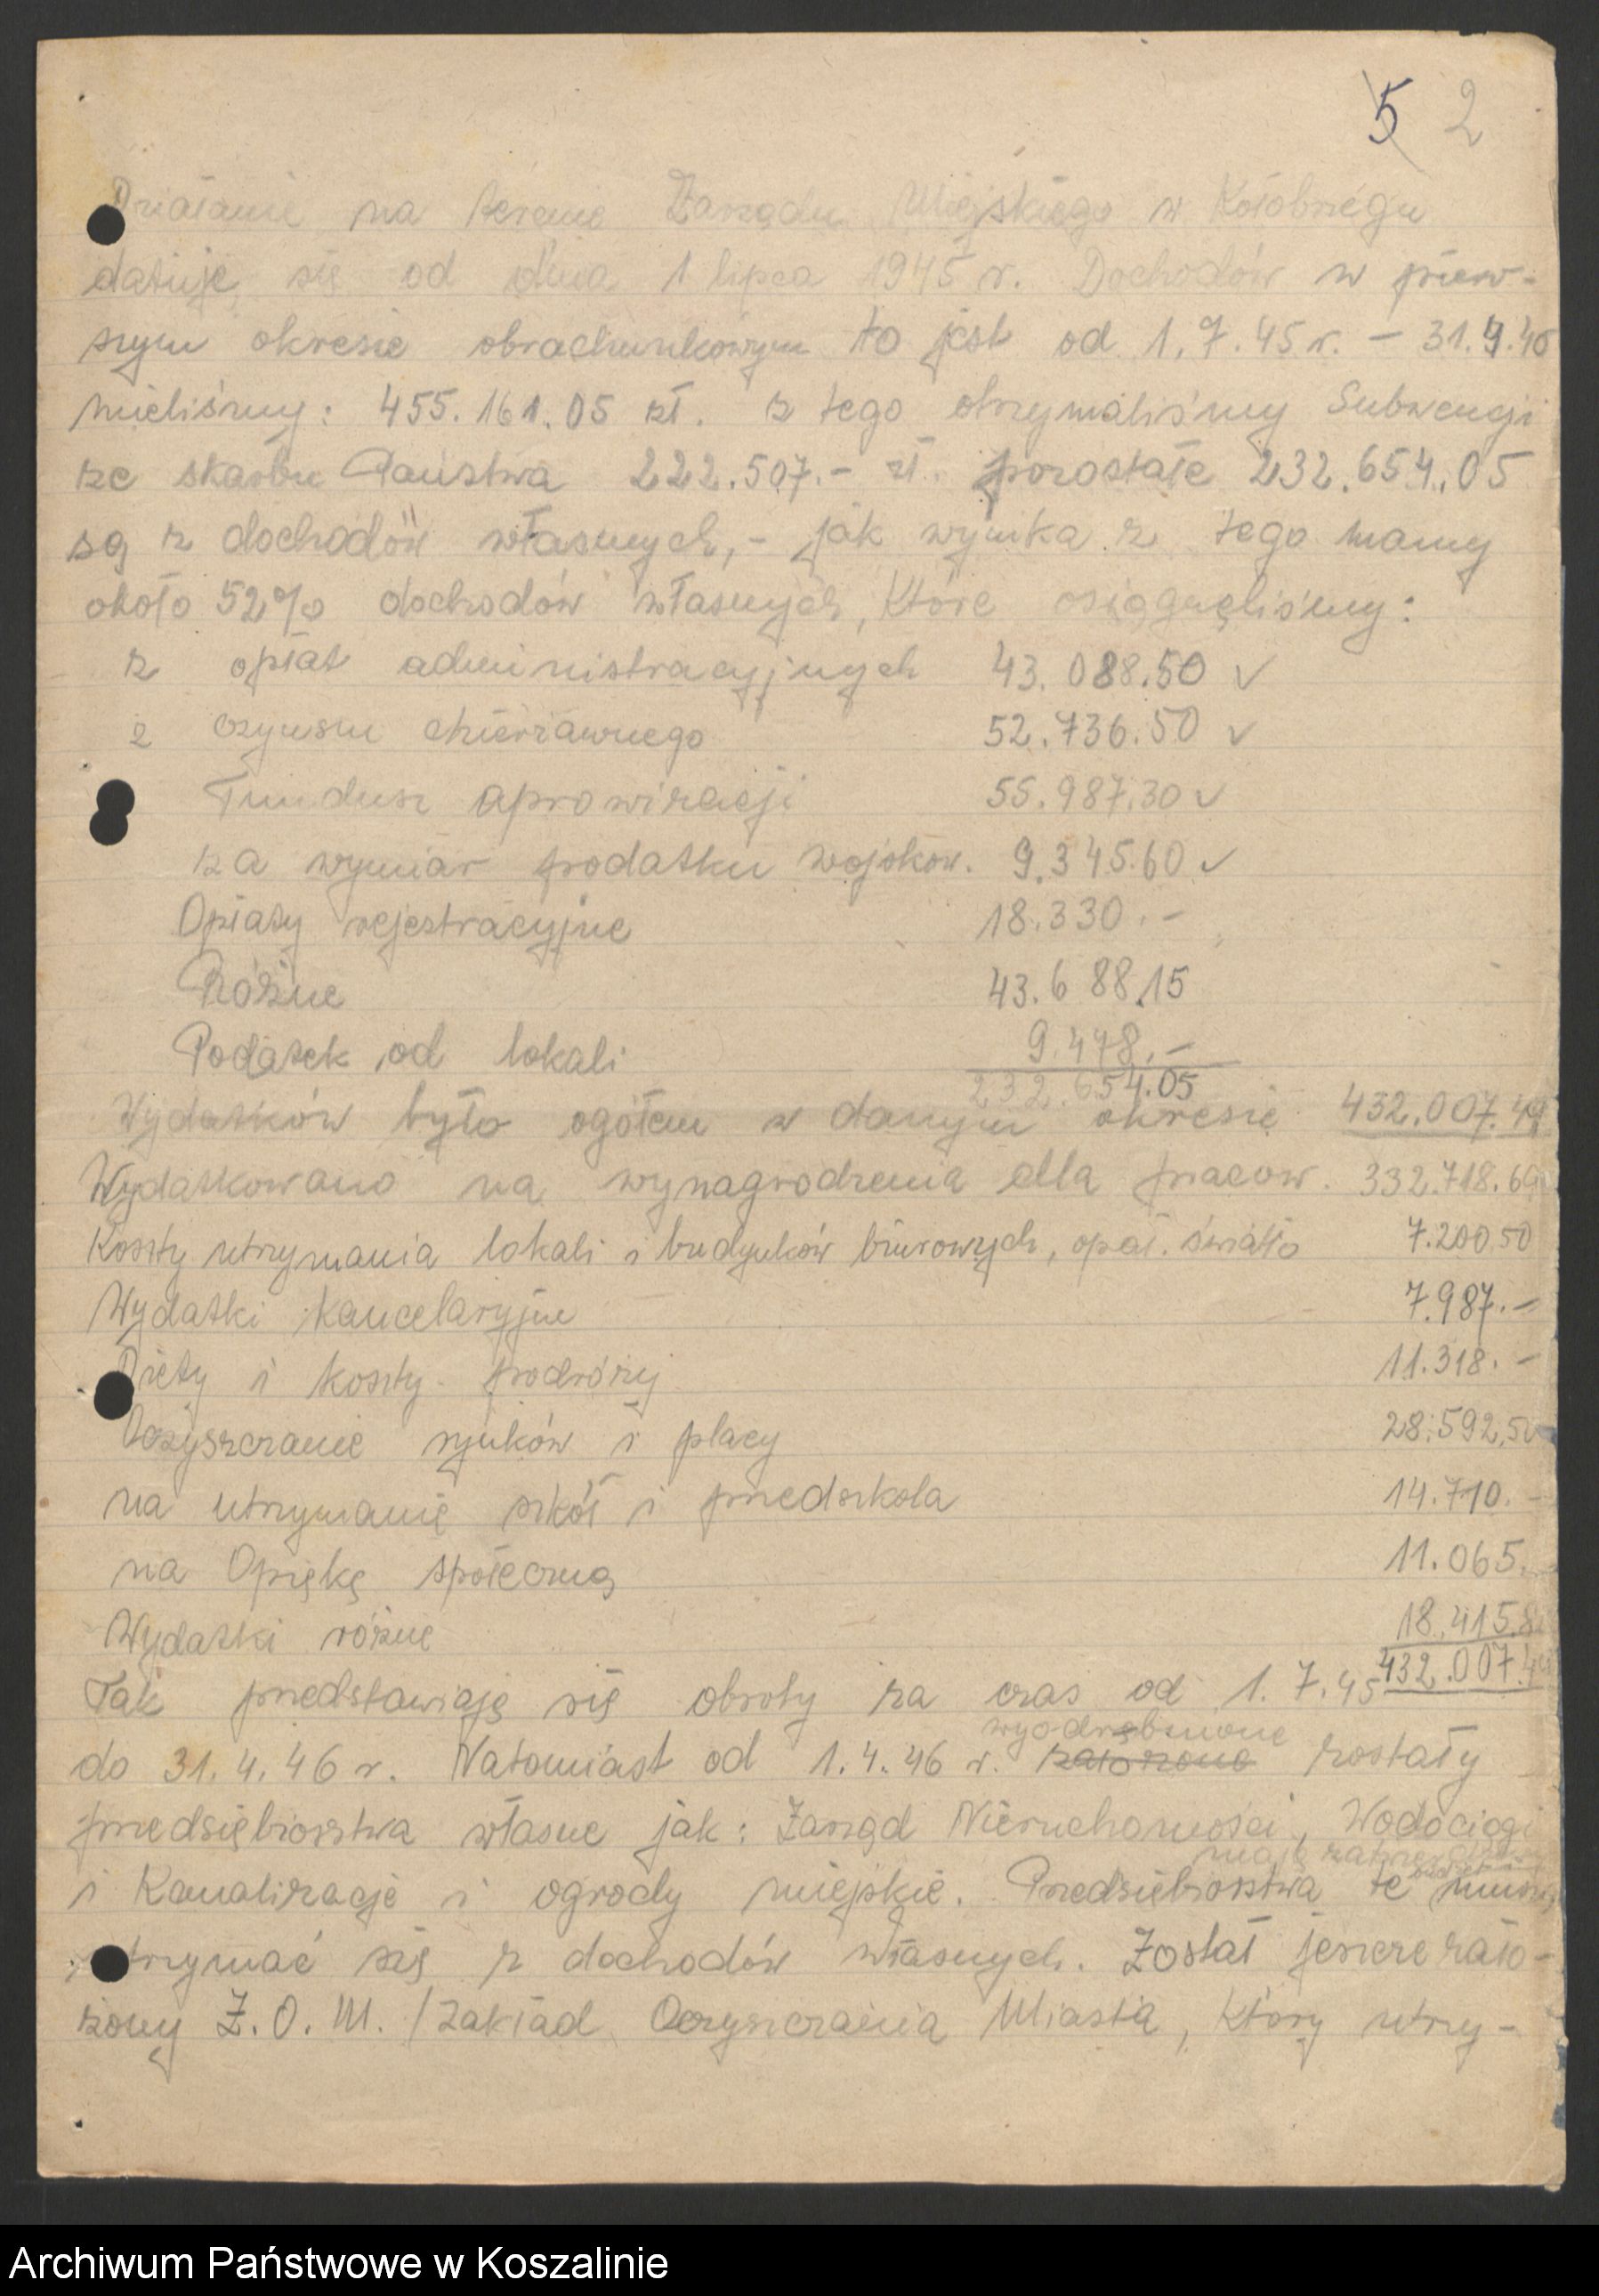 5 2
Działanie na terenie Zarządu Miejskiego w Kołobrzegu
datuje się od dnia 1 lipca 1945 r. Dochodów w pierw-
szym okresie obrachunkowym to jest od 1.7.45 r. – 31.4.46
mieliśmy: 455.161.05 zł. z tego otrzymaliśmy Subwencji
ze skarbu Państwa 222.507.– zł. pozostałe 232.654.05
są z dochodów własnych, – jak wynika z tego mamy
około 52% dochodów własnych, które osiągnęliśmy:
z opłat administracyjnych 43.088.50 ✓
z czynszu dzierżawnego 52.736.50 ✓
Fundusz aprowizacji 55.987.30 ✓
za wymiar podatku wojskow. 9.345.60 ✓
Opłaty rejestracyjne 18.330.–
Różne 43.688.15
Podatek od lokali 9.478.–
232.654.05
Wydatków było ogółem w danym okresie 432.007.49
Wydatkowano na wynagrodzenia dla pracow. 332.718.69
Koszty utrzymania lokali i budynków biurowych, opał. światło 7.200.50
Wydatki kancelaryjne 7.987.–
Diety i koszty podróży 11.318.–
Oczyszczanie rynków i placy 28.592,50
na utrzymanie szkół i przedszkola 14.710.–
na Opiekę społeczną 11.065.
Wydatki różne 18.415.8
432.007.4
Tak przedstawiają się obroty za czas od 1.7.45
wyodrębnione
do 31.4.46 r. Natomiast od 1.4.46 r. założone zostały
przedsiębiorstwa własne jak: Zarząd Nieruchomości, Wodociągi
mają
i Kanalizacje i ogrody miejskie. Przedsiębiorstwa te muszą
utrzymać się z dochodów własnych. Został jeszcze zało-
żony Z.O.M. /Zakład Oczyszczania Miasta, który utrzy-
Archiwum Państwowe w Koszalinie